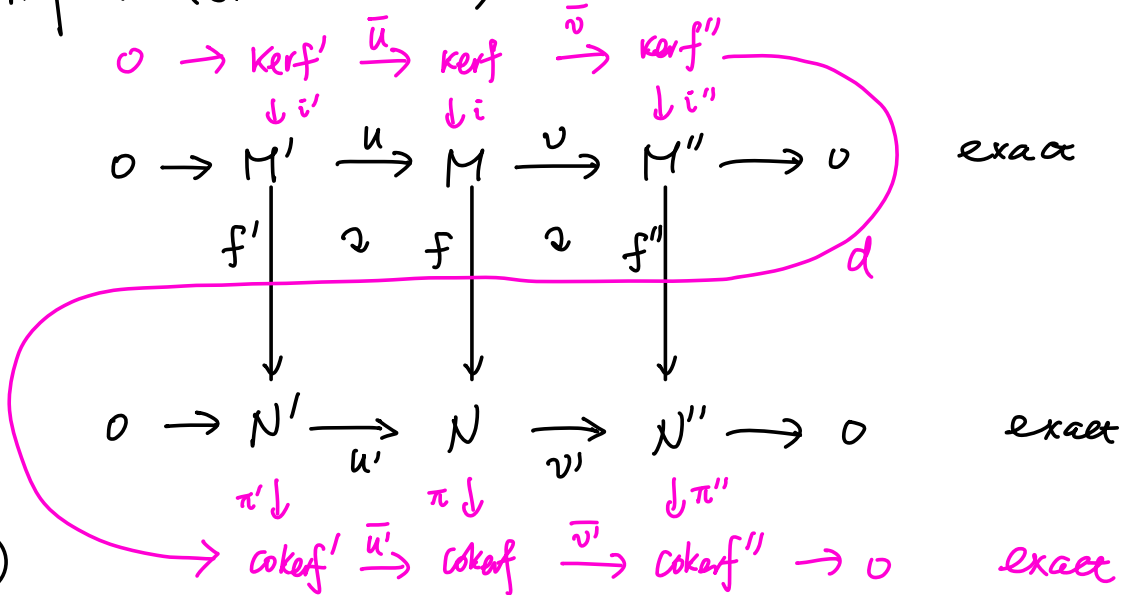 0 → kerf' ū→ kerf v̄→ kerf''
↓ i' ↓ i ↓ i''
0 → M' u→ M v→ M'' → 0 exact
f' ↓ f ↓ f'' ↓ d
0 → N' u'→ N v'→ N'' → 0 exact
π' ↓ π ↓ ↓ π''
) cokerf' ū'→ cokerf v̄'→ cokerf'' → 0 exact